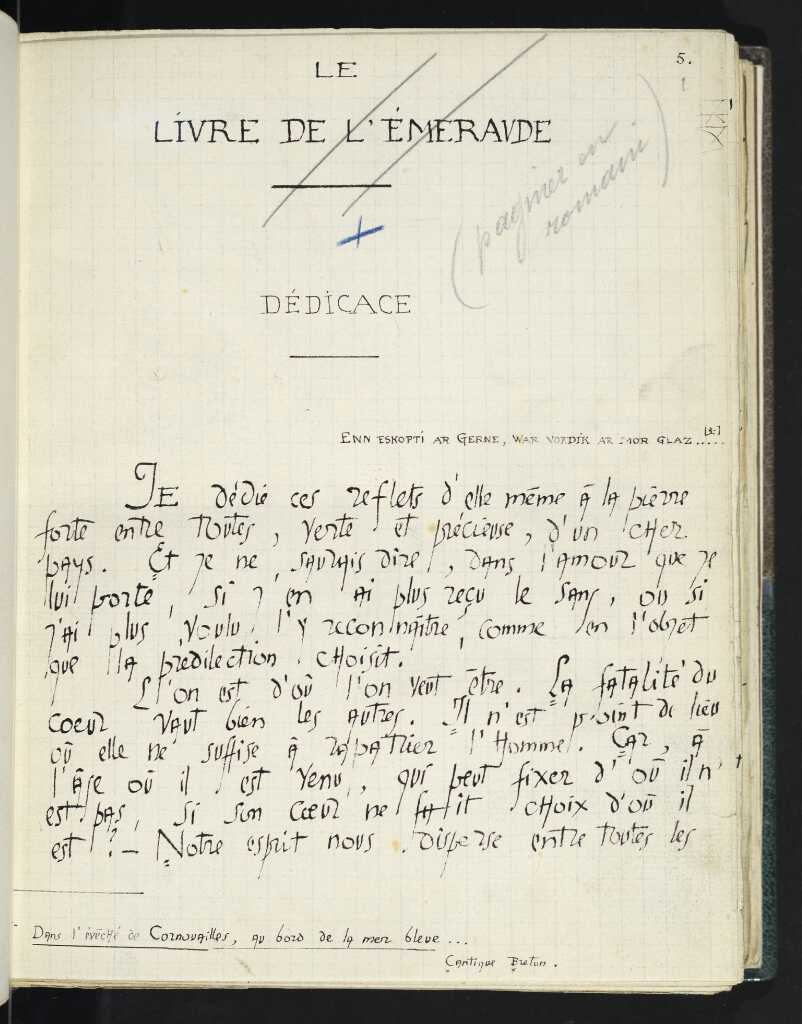 5.
1
LE
LIVRE DE L'ÉMERAVDE
(paginer en
romain)
DÉDICACE
ENN ESKOPTI AR GERNE, WAR VORDIK AR MOR GLAZ.....
JE dédie ces reflets d'elle même à la pierre
forte entre toutes, verte et précieuse, d'un cher
pays. Et je ne saurais dire, dans l'amour que je
lui porte, si j'en ai plus reçu le sang, ou si
j'ai plus voulu l'y reconnaître, comme en l'objet
que la prédilection choisit.
L'on est d'où l'on veut être. La fatalité du
cœur vaut bien les autres. Il n'est point de lieu
où elle ne suffise à rapatrier l'Homme. Car, à
l'âge où il est venu, qui peut fixer d'où il n'
est pas, si son cœur ne fait choix d'où il
est ? — Notre esprit nous disperse entre toutes les
Dans l'évêché de Cornouailles, au bord de la mer bleue ...
Cantique Breton.